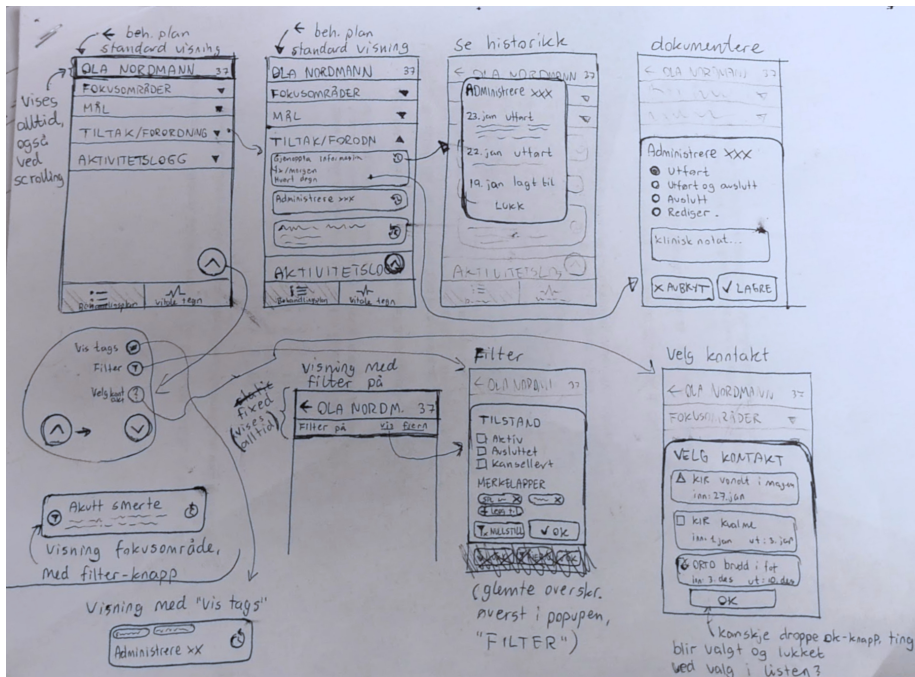 ← beh. plan
standard visning
OLA NORDMANN 37
FOKUSOMRÅDER
MÅL
TILTAK/FORORDNING
AKTIVITETSLOGG
Behandlingsplan
Vitale tegn
Vises
alltid,
også
ved
scrolling
← beh. plan
standard visning
OLA NORDMANN 37
FOKUSOMRÅDER
MÅL
TILTAK/FORODN
Gjennoppta informasjon
4x/morgen
Hvert døgn
Administrere xxx
AKTIVITETSLOGG
Behandlingsplan
Vitale tegn
Se historikk
← OLA NORDMANN 37
ADministrere xxx
23. jan utført
22. jan utført
19. jan lagt til
LUKK
AKTIVITETSLOG
dokumentere
← OLA NORDMANN 37
Administrere XXX
Utført
Utført og avslutt
Avslutt
Rediger.
klinisk notat...
X AVBRYT
✓ LAGRE
Vis tags
Filter
Velg kont
akt
Akutt smerte
Visning fokusområde,
med filter-knapp
Visning med "Vis tags"
Administrere xx
Visning med
filter på
fixed
(vises
alltid)
← OLA NORDM. 37
Filter på vis fjern
Filter
← OLA NORDM 37
TILSTAND
Aktiv
Avsluttet
Kansellert
MERKELAPPER
+ Legg til
NULLSTILL
✓ OK
(glemte overskr.
øverst i popupen,
"FILTER")
Velg kontakt
← OLA NORDMANN 37
FOKUSOMRÅDER
VELG KONTAKT
KIR vondt i magen
inn: 27. jan
KIR kvalme
inn: 1. jan ut: 3. jan
ORTO brudd i fot
inn: 3. des ut: 10. des
OK
kanskje droppe ok-knapp, ting
blir valgt og lukket
ved valg i listen?